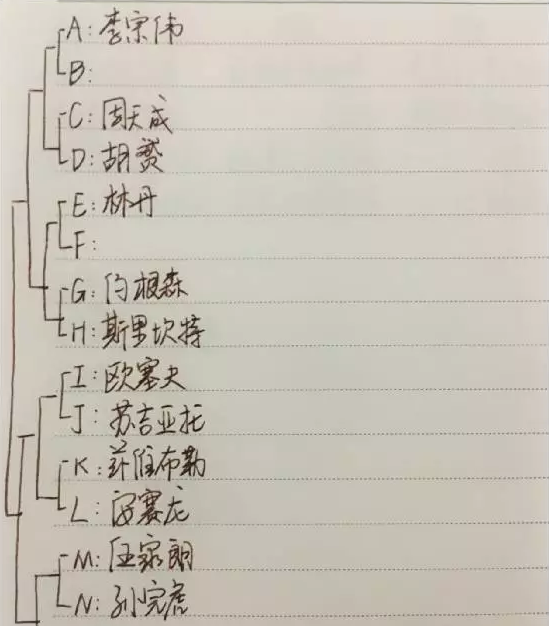 A: 李宗伟
B:
C: 周天成
D: 胡赟
E: 林丹
F:
G: 约根森
H: 斯里坎特
I: 欧塞夫
J: 苏吉亚托
K: 菲维布勒
L: 安赛龙
M: 伍家朗
N: 孙完虎